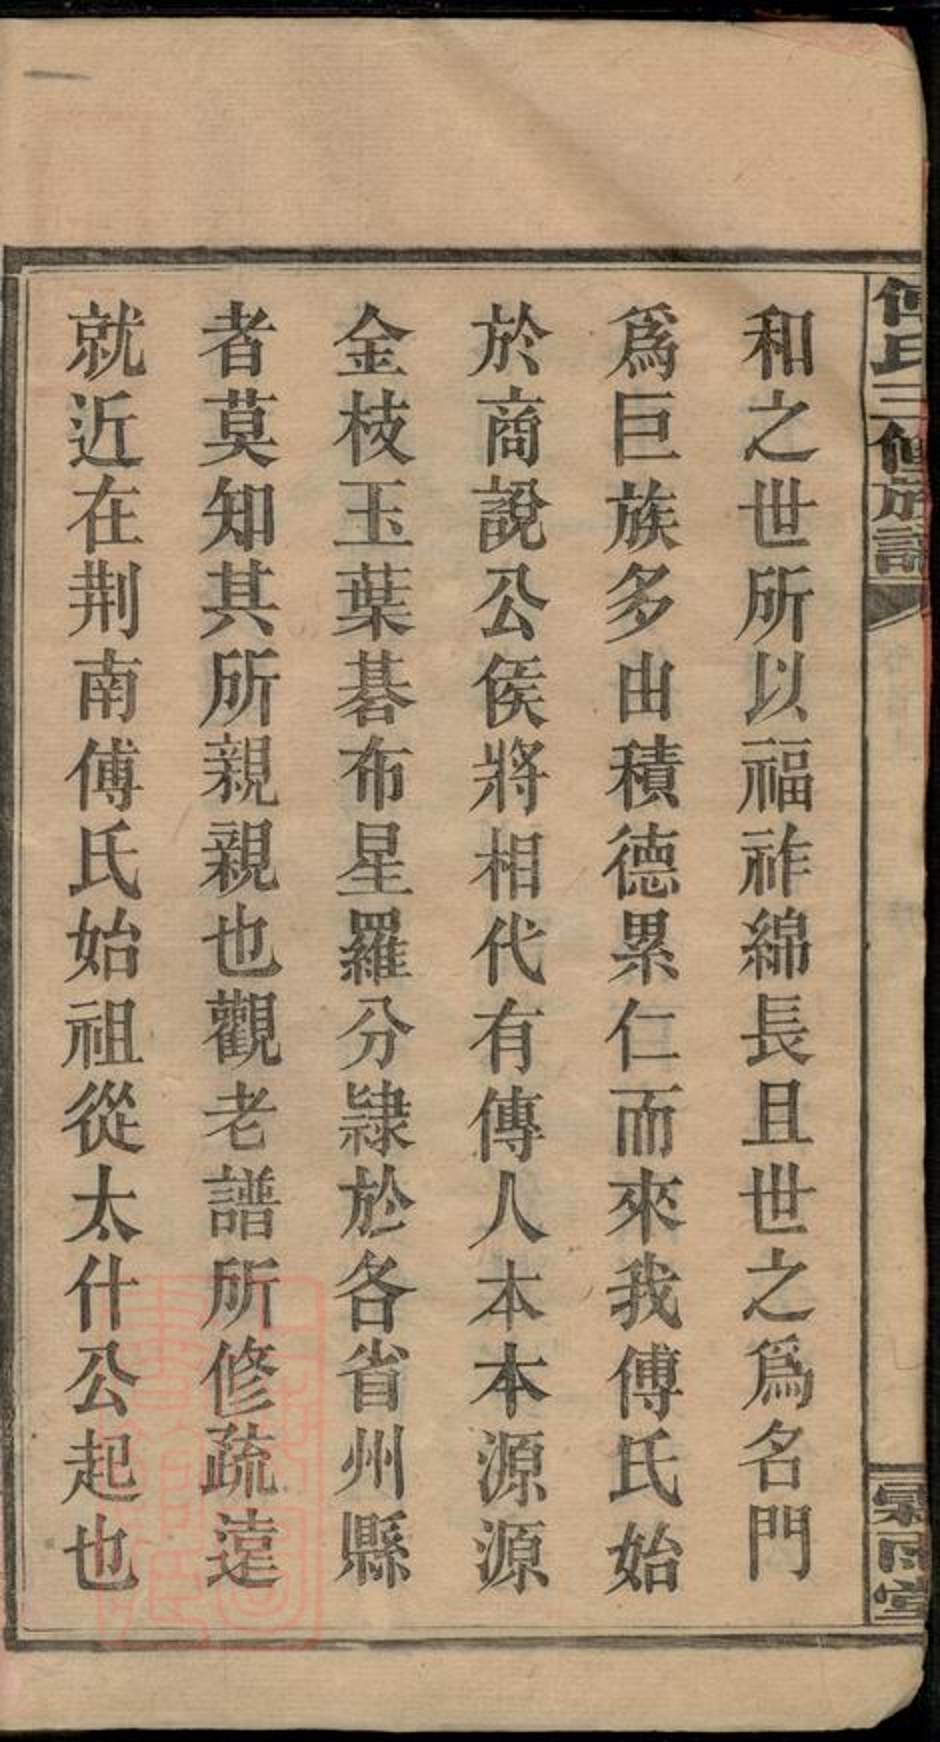 傅氏三修族譜
霖雨堂
和之世所以福祚綿長且世之爲名門
爲巨族多由積德累仁而來我傅氏始
於商說公侯將相代有傳人本本源源
金枝玉葉碁布星羅分隸於各省州縣
者莫知其所親親也觀老譜所修疏遠
就近在荆南傅氏始祖從太什公起也